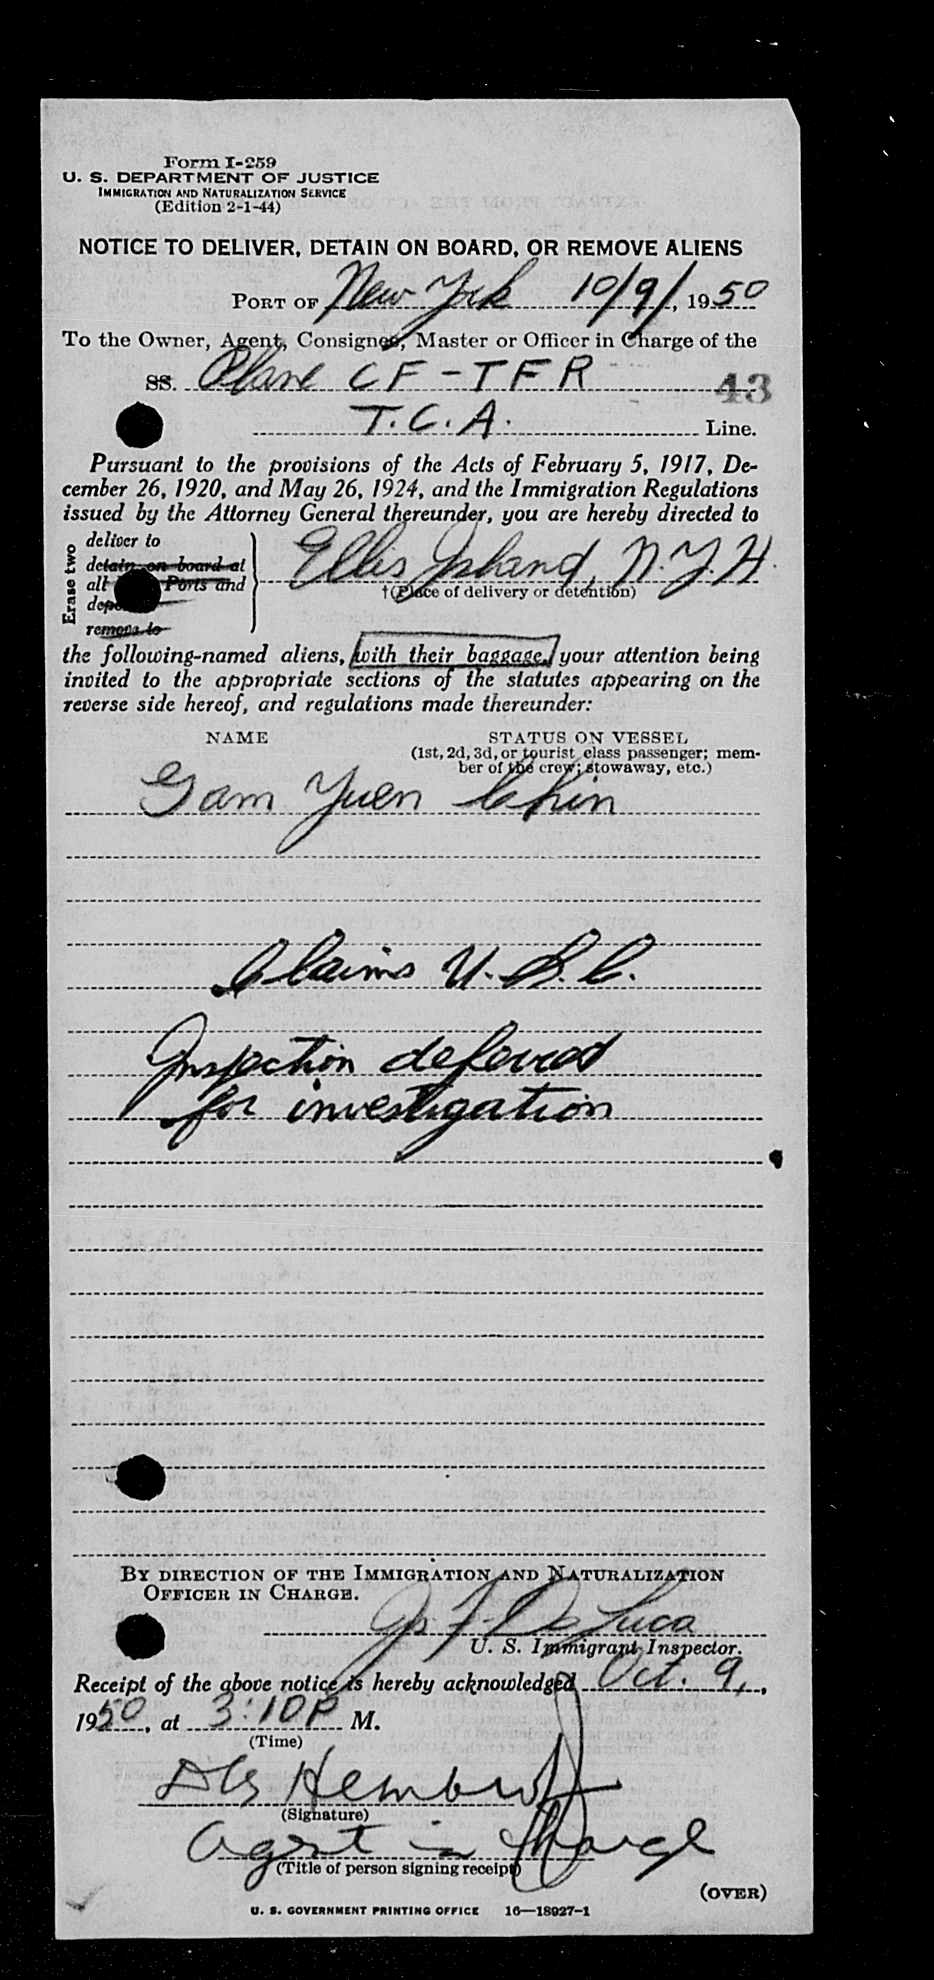 Form I-259
U. S. DEPARTMENT OF JUSTICE
IMMIGRATION AND NATURALIZATION SERVICE
(Edition 2-1-44)
NOTICE TO DELIVER, DETAIN ON BOARD, OR REMOVE ALIENS
PORT OF New York 10/9/, 1950
To the Owner, Agent, Consignee, Master or Officer in Charge of the
SS. Plane CF-TFR 43
T.C.A. Line.
Pursuant to the provisions of the Acts of February 5, 1917, De-
cember 26, 1920, and May 26, 1924, and the Immigration Regulations
issued by the Attorney General thereunder, you are hereby directed to
Erase two
deliver to
detain on board at
all Ports and
remove to
Ellis Island, N.Y.H.
†(Place of delivery or detention)
the following-named aliens, with their baggage, your attention being
invited to the appropriate sections of the statutes appearing on the
reverse side hereof, and regulations made thereunder:
NAME STATUS ON VESSEL
(1st, 2d, 3d, or tourist class passenger; mem-
ber of the crew; stowaway, etc.)
Gam Yuen Chin
Claims U.S.C.
Inspection deferred
for investigation
BY DIRECTION OF THE IMMIGRATION AND NATURALIZATION
OFFICER IN CHARGE.
De Luca
U. S. Immigrant Inspector.
Receipt of the above notice is hereby acknowledged Oct. 9,,
1950, at 3:10P M.
(Time)
(Signature)
Agent in Charge
(Title of person signing receipt)
(OVER)
U. S. GOVERNMENT PRINTING OFFICE 16—18927-1